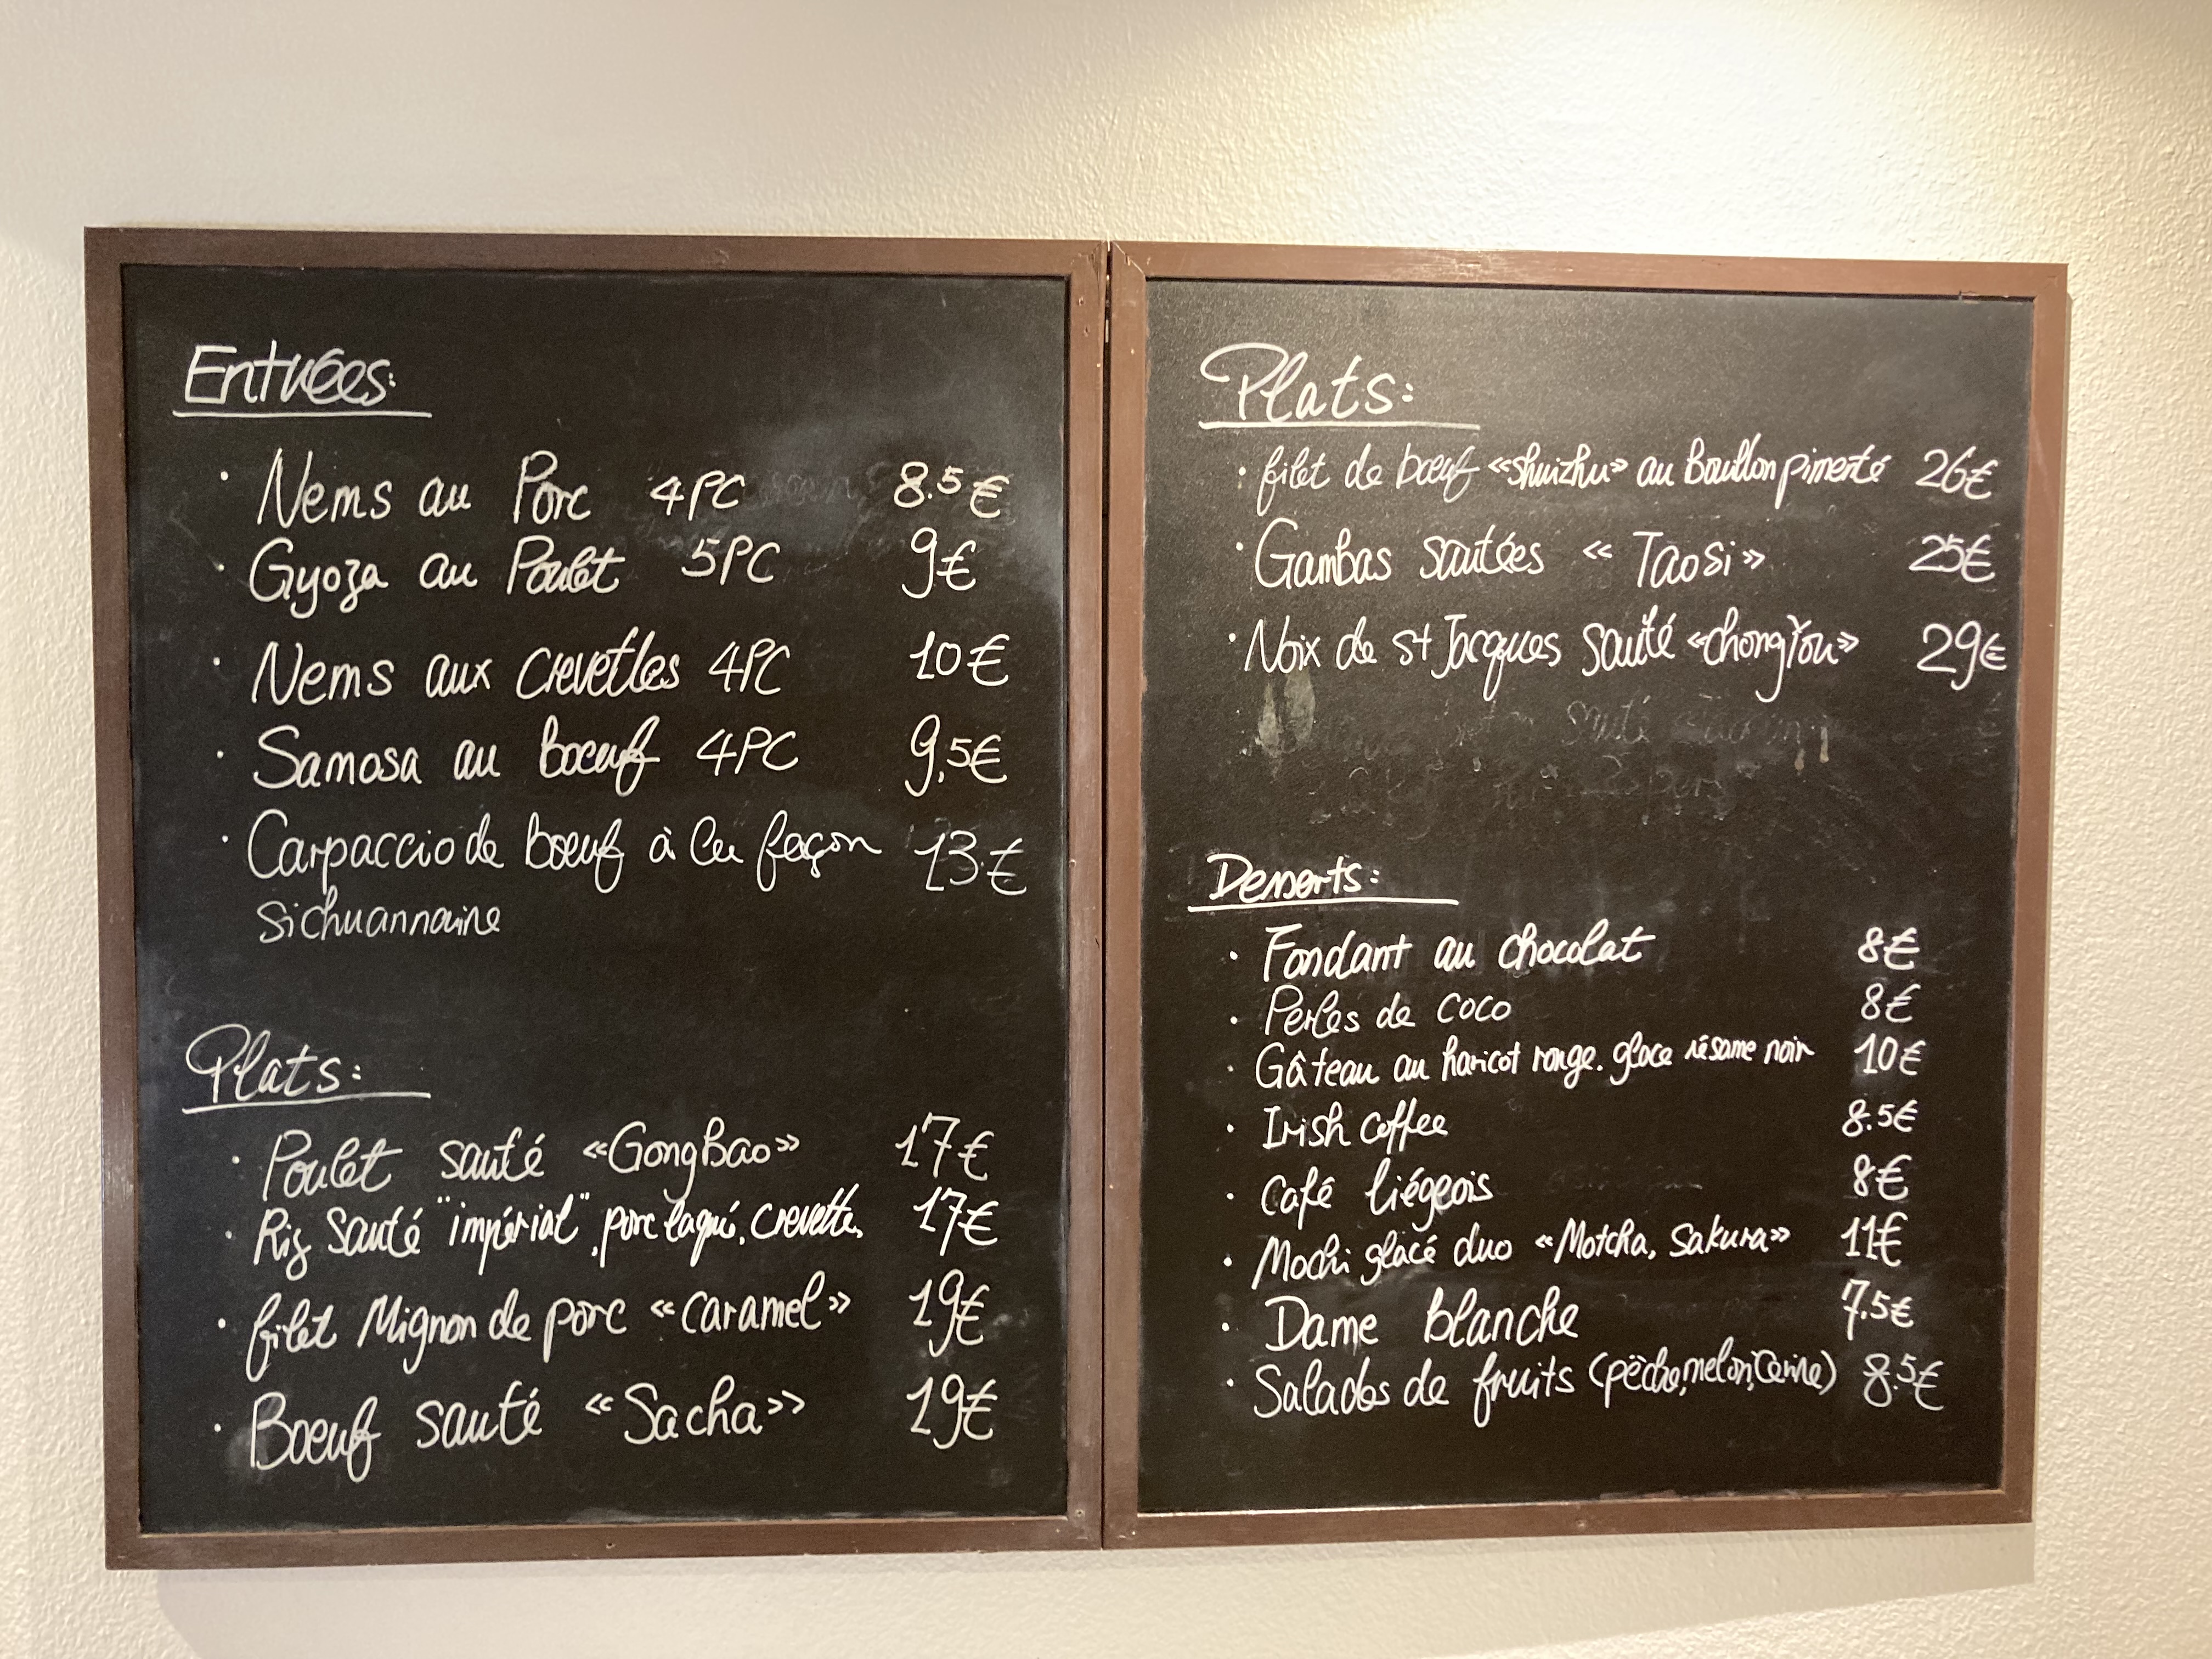 Entrées:
· Nems au Porc 4PC 8.5€
· Gyoza au Poulet 5PC 9€
· Nems aux crevettes 4PC 10€
· Samosa au boeuf 4PC 9,5€
· Carpaccio de boeuf à la façon 13€
sichuannaine
Plats:
· Poulet sauté «GongBao» 17€
· Riz sauté "impérial", porc laqué, crevette, 17€
· filet Mignon de porc «caramel» 19€
· Boeuf sauté «Sacha» 19€
Plats:
· filet de bœuf «shuizhu» au Bouillon pimenté 26€
· Gambas sautées «Taosi» 25€
· Noix de st Jacques sauté «chongYou» 29€
sauté
Desserts:
· Fondant au chocolat 8€
· Perles de coco 8€
· Gâteau au haricot rouge. glace sésame noir 10€
· Irish coffee 8.5€
· Café liégeois 8€
· Mochi glacé duo «Motcha, Sakura» 11€
· Dame blanche 7.5€
· Salades de fruits (pêche, melon, Cerise) 8.5€